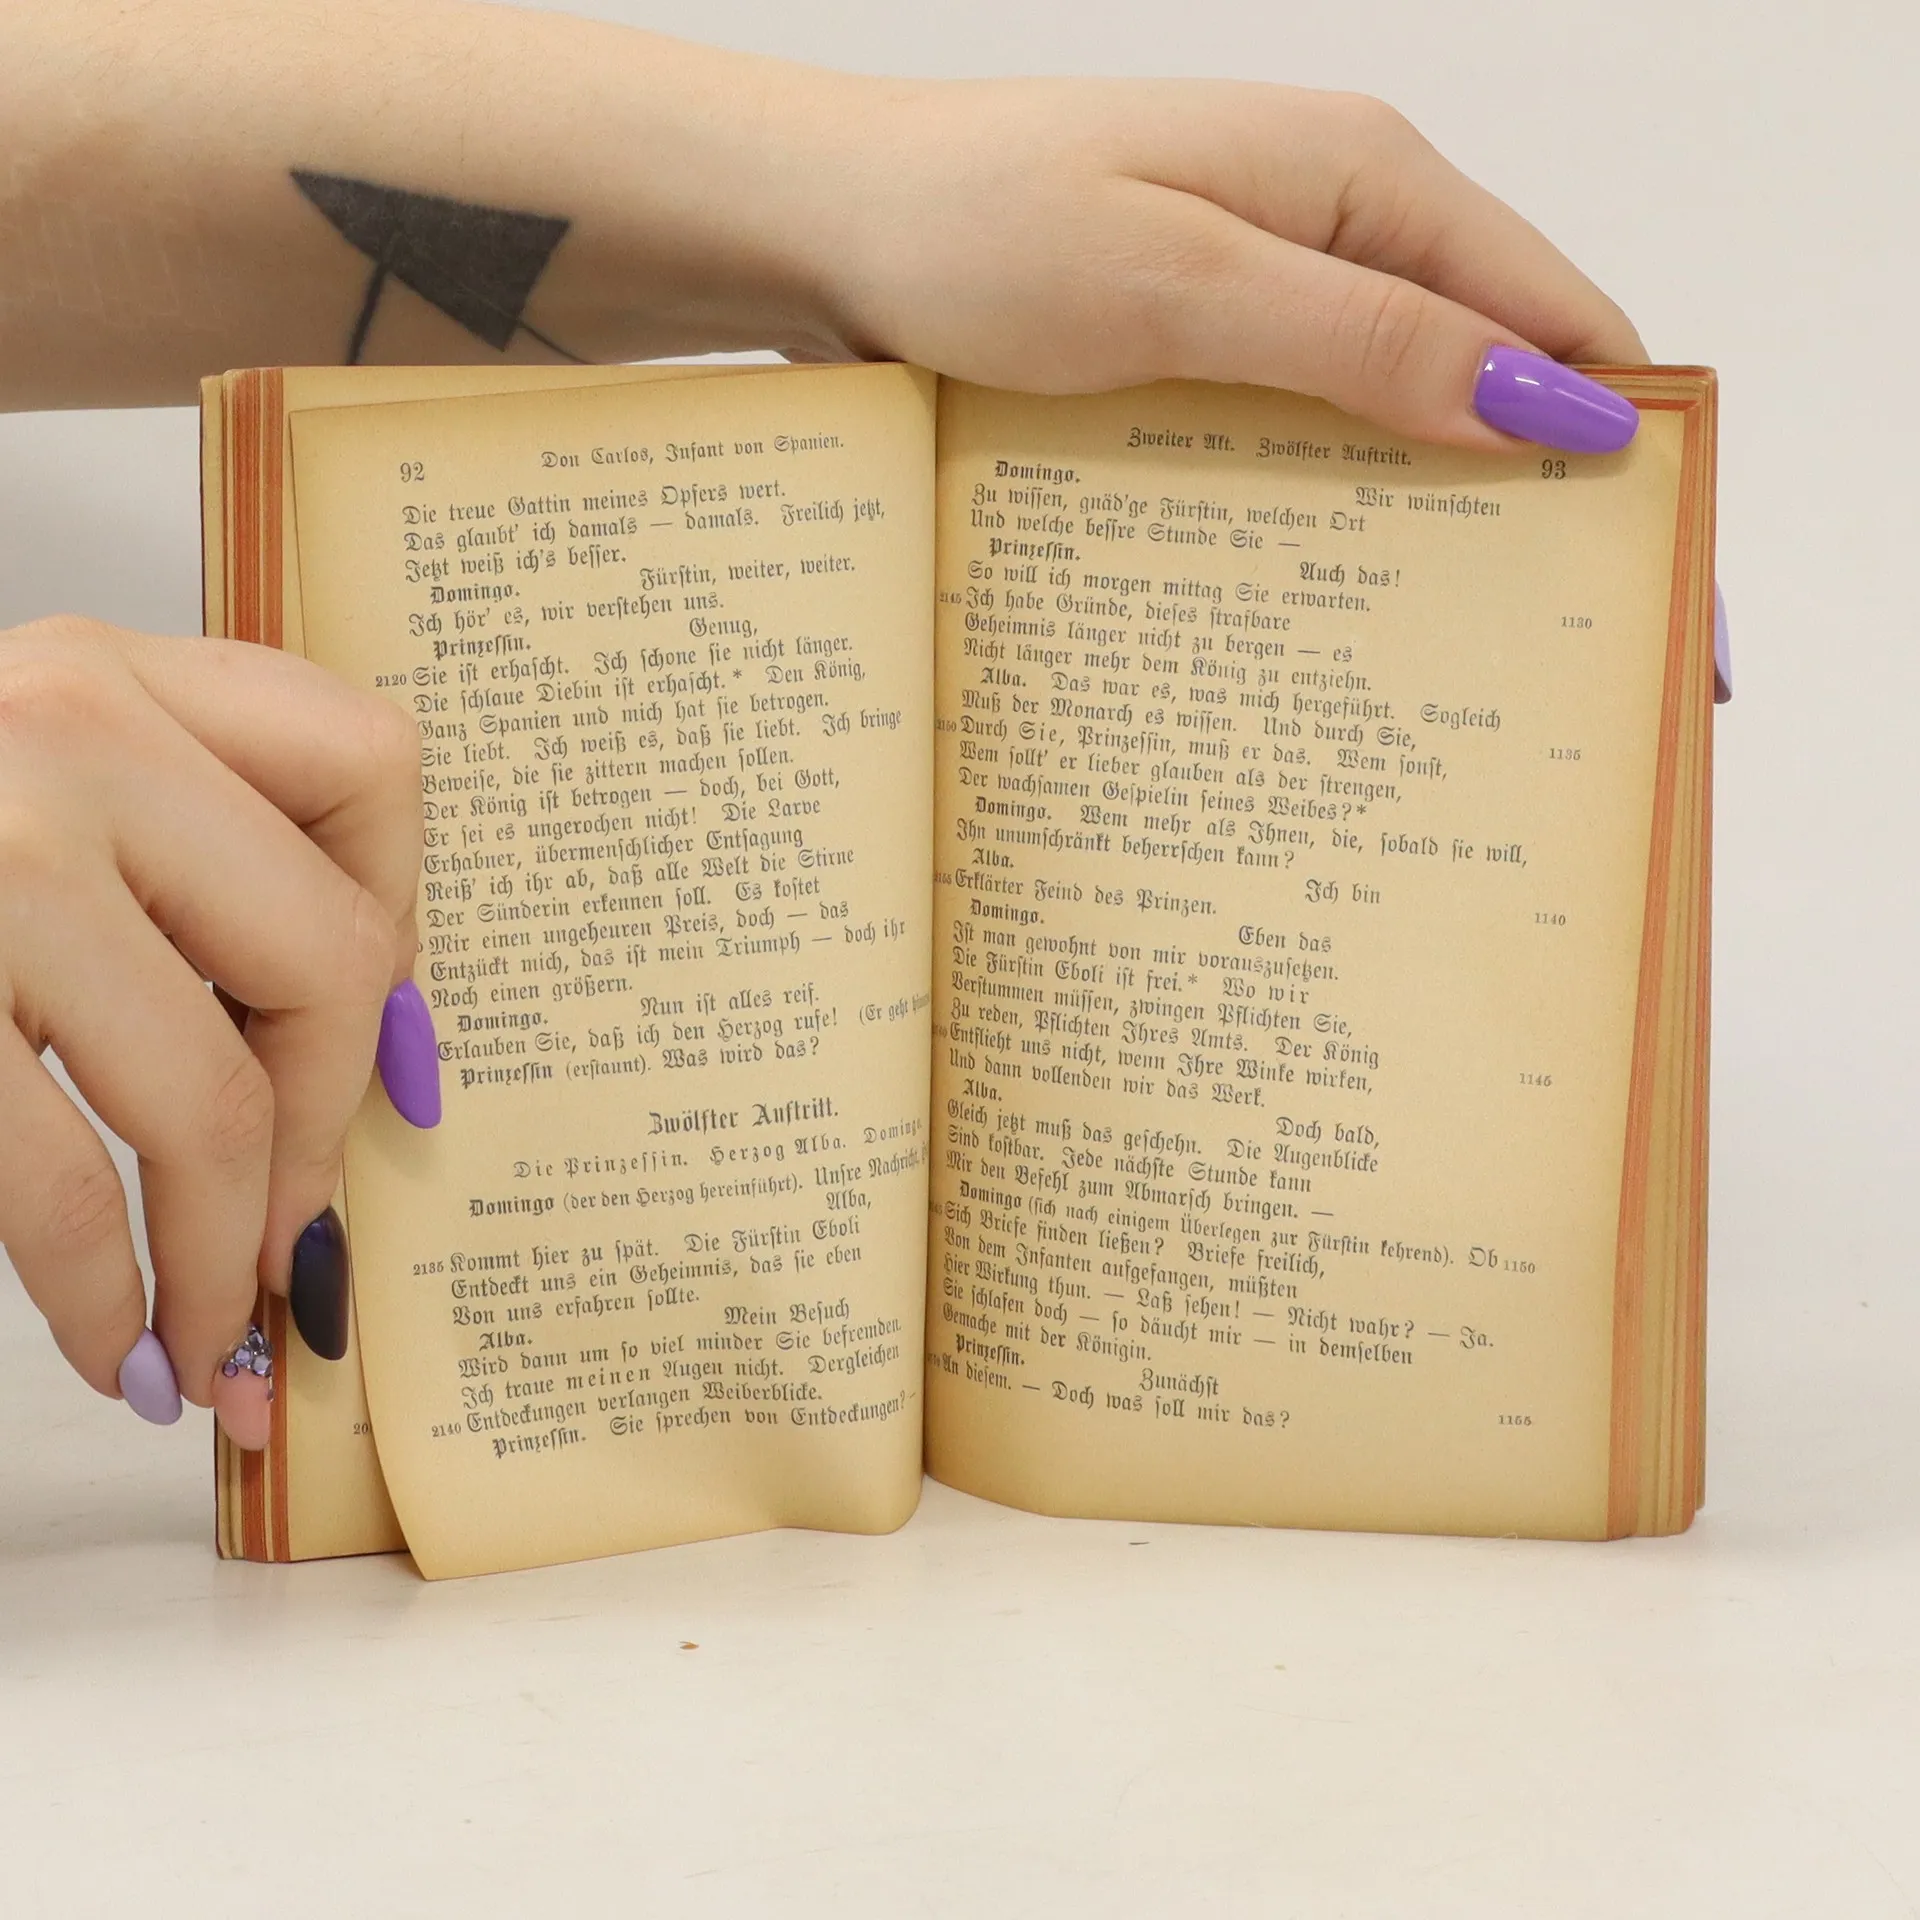 92 Don Carlos, Infant von Spanien.
Die treue Gattin meines Opfers wert.
Das glaubt' ich damals — damals. Freilich jetzt,
Jetzt weiß ich's besser.
Domingo. Fürstin, weiter, weiter.
Ich hör' es, wir verstehen uns.
Prinzessin. Genug,
2120 Sie ist erhascht. Ich schone sie nicht länger.
Die schlaue Diebin ist erhascht.* Den König,
Ganz Spanien und mich hat sie betrogen.
Sie liebt. Ich weiß es, daß sie liebt. Ich bringe
Beweise, die sie zittern machen sollen.
Der König ist betrogen — doch, bei Gott,
Er sei es ungerochen nicht! Die Larve
Erhabner, übermenschlicher Entsagung
Reiß' ich ihr ab, daß alle Welt die Stirne
Der Sünderin erkennen soll. Es kostet
Mir einen ungeheuren Preis, doch — das
Entzückt mich, das ist mein Triumph — doch ihr
Noch einen größern.
Domingo. Nun ist alles reif.
Erlauben Sie, daß ich den Herzog rufe! (Er geht
Prinzessin (erstaunt). Was wird das?
Zwölfter Auftritt.
Die Prinzessin. Herzog Alba. Domingo.
Domingo (der den Herzog hereinführt). Unsre Nachricht,
Alba,
2135 Kommt hier zu spät. Die Fürstin Eboli
Entdeckt uns ein Geheimnis, das sie eben
Von uns erfahren sollte.
Alba. Mein Besuch
Wird dann um so viel minder Sie befremden.
Ich traue meinen Augen nicht. Dergleichen
2140 Entdeckungen verlangen Weiberblicke.
Prinzessin. Sie sprechen von Entdeckungen? —
20
Zweiter Akt. Zwölfter Auftritt. 93
Domingo. Wir wünschten
Zu wissen, gnäd'ge Fürstin, welchen Ort
Und welche bessre Stunde Sie —
Prinzessin. Auch das!
So will ich morgen mittag Sie erwarten.
2145 Ich habe Gründe, dieses strafbare 1130
Geheimnis länger nicht zu bergen — es
Nicht länger mehr dem König zu entziehn.
Alba. Das war es, was mich hergeführt. Sogleich
Muß der Monarch es wissen. Und durch Sie,
2150 Durch Sie, Prinzessin, muß er das. Wem sonst, 1135
Wem sollt' er lieber glauben als der strengen,
Der wachsamen Gespielin seines Weibes?*
Domingo. Wem mehr als Ihnen, die, sobald sie will,
Ihn unumschränkt beherrschen kann?
Alba. Ich bin
Erklärter Feind des Prinzen. 1140
Domingo. Eben das
Ist man gewohnt von mir vorauszusetzen.
Die Fürstin Eboli ist frei.* Wo wir
Verstummen müssen, zwingen Pflichten Sie,
Zu reden, Pflichten Ihres Amts. Der König
Entflieht uns nicht, wenn Ihre Winke wirken, 1145
Und dann vollenden wir das Werk.
Alba. Doch bald,
Gleich jetzt muß das geschehn. Die Augenblicke
Sind kostbar. Jede nächste Stunde kann
Mir den Befehl zum Abmarsch bringen. —
Domingo (sich nach einigem Überlegen zur Fürstin kehrend). Ob 1150
Sich Briefe finden ließen? Briefe freilich,
Von dem Infanten aufgefangen, müßten
Hier Wirkung thun. — Laß sehen! — Nicht wahr? — Ja.
Sie schlafen doch — so däucht mir — in demselben
Gemache mit der Königin.
Prinzessin. Zunächst
An diesem. — Doch was soll mir das? 1155